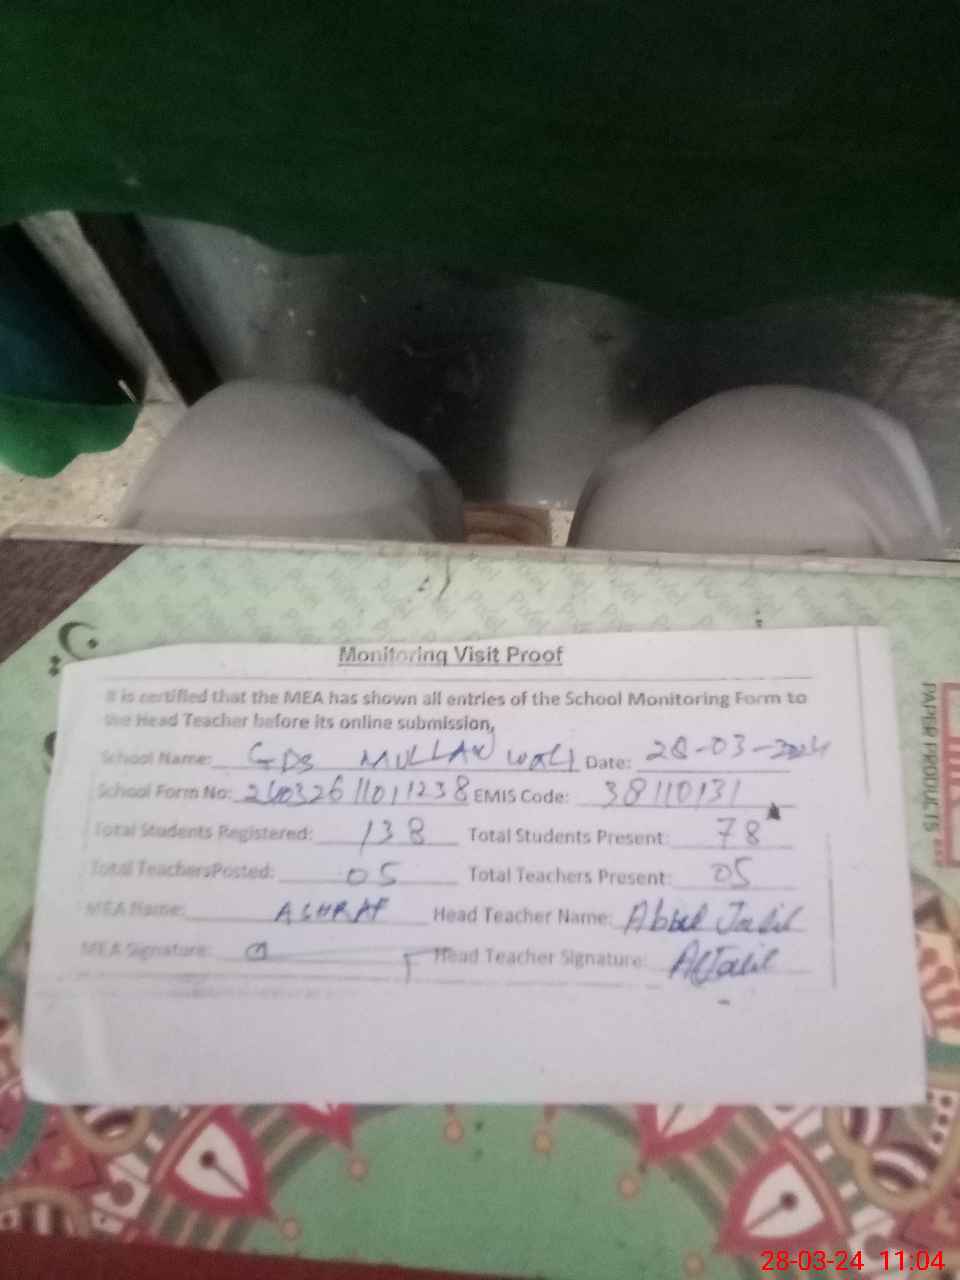 Monitoring Visit Proof
It is certified that the MEA has shown all entries of the School Monitoring Form to
the Head Teacher before its online submission,
School Name: GDS MULLAN WALI Date: 28-03-2024
School Form No: EMIS Code: 38110131
Total Students Registered: 138 Total Students Present: 78
Total TeachersPosted: 05 Total Teachers Present: 05
MEA Name: ASHRAF Head Teacher Name: Abdul Jalil
MEA Signature: Head Teacher Signature: AJalil
PAPER PRODUCTS
28-03-24 11:04